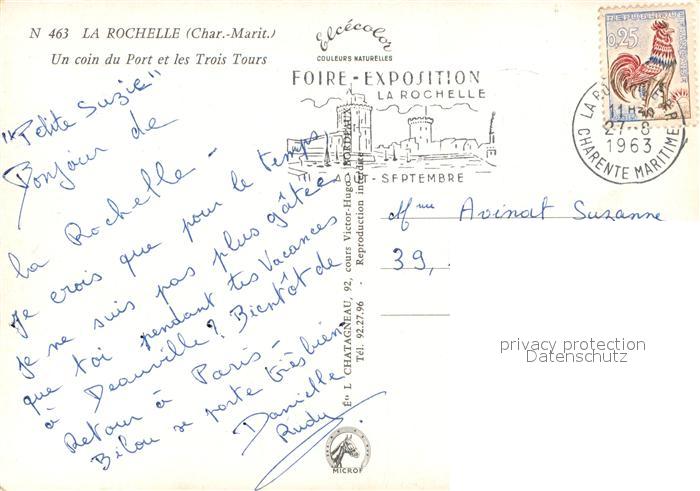 N 463 LA ROCHELLE (Char.-Marit.)
Un coin du Port et les Trois Tours
Elcécolor
COULEURS NATURELLES
FOIRE-EXPOSITION
LA ROCHELLE
AOUT-SEPTEMBRE
REPUBLIQUE FRANÇAISE
0,25
LA ROCHELLE
11H
27-8
1963
CHARENTE MARITIME
"Petite Suzie"
Bonjour de
la Rochelle -
Je crois que pour le temps,
je ne suis pas plus gâtée
que toi pendant tes vacances
à Deauville? Bientôt de
Retour à Paris -
Bilou se porte très bien
Danielle
Rudy
Ets L CHATAGNEAU, 92, cours Victor-Hugo, BORDEAUX
Tél. 92.27.96 - Reproduction interdite
Mme Avinat Suzanne
39,
privacy protection
Datenschutz
MICROF